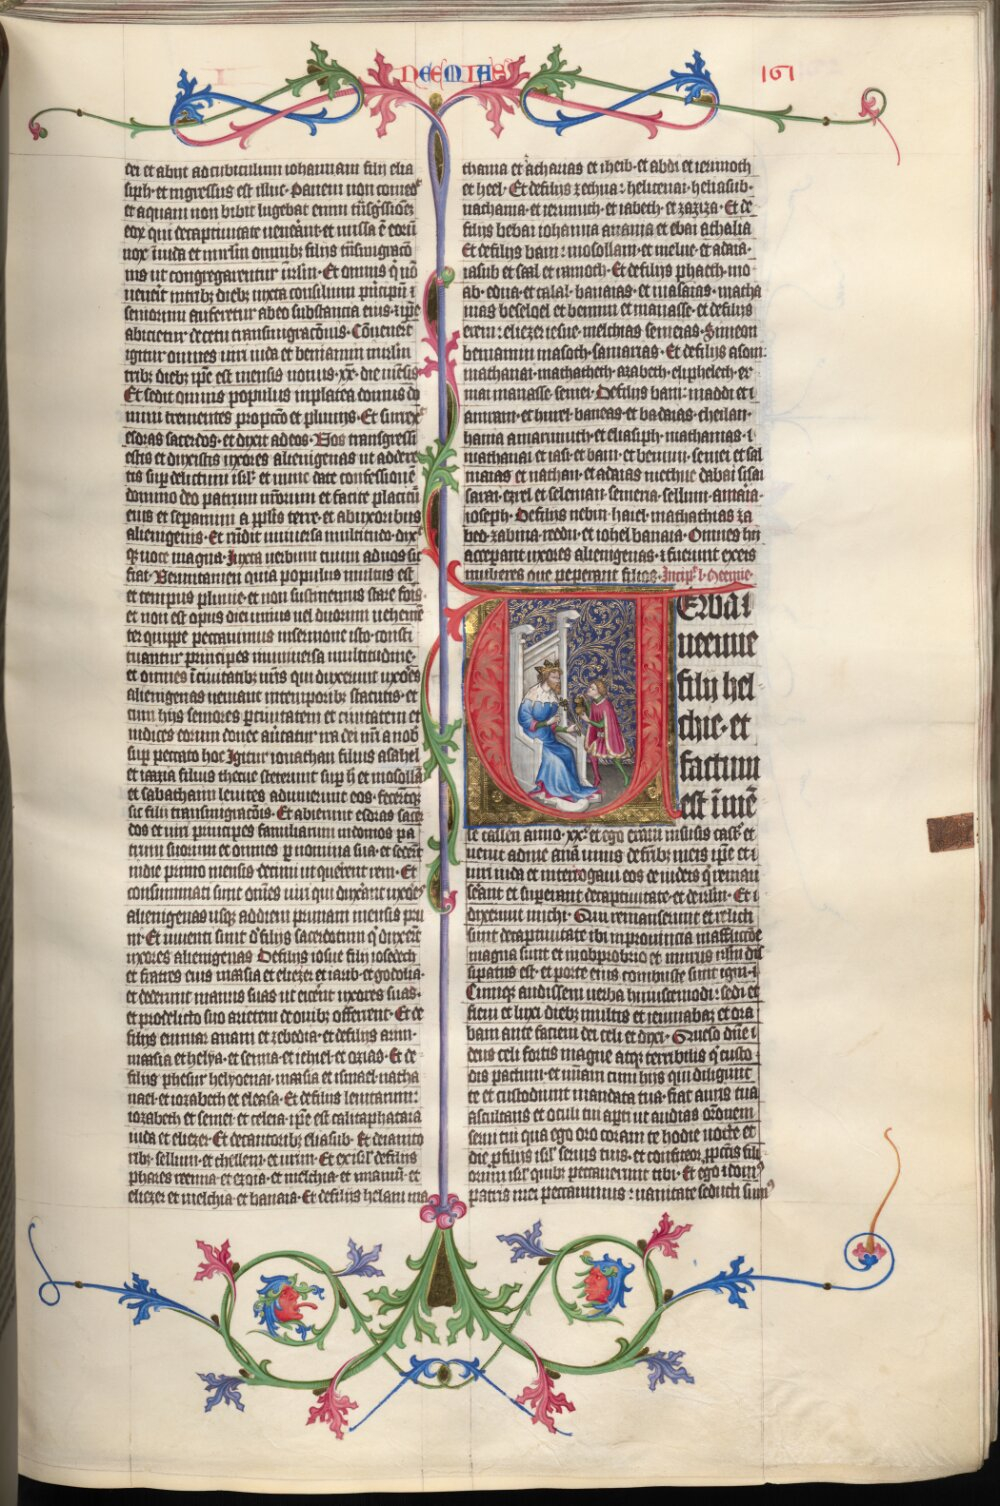 NEEMIAE
161
dei et abiit ad cubiculum iohannam filij elia
siph et ingressus est illuc. Panem non comed
et aquam non bibit lugebat enim
eo qui de captiuitate uenerant et missa ē
uox ī iuda et in irlm omnibꝫ filijs
nis ut congregarentur īirlm. Et omnis q̄ nō
uenerit intribꝫ diebꝫ iuxta consilium prīcipū ⁊
seniorum auferetur ab eo substantia eius ⁊ ipe
abicietur decetu transmigracōnis. Cōuenerūt
igitur omnes uiri iuda et beniamin inirlm
tribꝫ diebꝫ ipe est mensis nonus .xx. die mēsis
Et sedit omnis populus inplatea domus do
mini trementes pro pccō et pluuijs. Et surrex
esdras sacerdos. et dixit ad eos. Uos transgressi
estis et duxistis uxores alienigenas ut addere
tis sup delictum isrl. et nunc date confessionē
domino deo patrum nrōrum et facite placitū
eius et separamini a pplis terre. et ab uxoribus
alienigenis. Et rn̄dit uniuersa multitudo dix
qꝫ uoce magna. Iuxta uerbum tuum ad nos sic
fiat. Uerumtamen quia populus multus est
et tempus pluuie. et non sustinemus stare foris
et non est opus diei unius uel duorum uehemē
ter quippe peccauimus in sermone isto. consti
tuantur principes in uniuersa multitudine.
et omnes ī ciuitatibꝫ nrīs qui duxerunt uxores
alienigenas ueniant in temporibꝫ statutis. et
cum hijs seniores p ciuitatem et ciuitatem et
iudices eorum donec auertatur ira dei nrī a nob
sup peccato hoc Igitur ionathan filius asahel
et iaazia filius thecue steterunt sup h̄ et mosollā
et sabathaim leuites adiuuerunt eos. fecerūtqꝫ
sic filij transmigracōis. Et abierunt esdras sacer
dos et uiri principes familiarum indomos pa
trum suorum et omnes p nomina sua. et sederūt
indie primo mensis decimi ut quererent rem. Et
consummati sunt om̄es uiri qui duxerant uxores
alienigenas usqꝫ ad diem primam mensis pri
mi. Et inuenti sunt d'filijs sacerdotum q̄ duxerūt
uxores alienigenas De filijs iosue filij iosedech
et fratres eius maasia et eliezer et iarib. et godolia.
et dederunt manus suas ut eicerent uxores suas.
et pro delicto suo arietem de ouibꝫ offerrent. Et de
filijs emmar anani et zebedia. et de filijs arim.
maasia et helya. et semia. et iehiel et ozias. Et de
filijs phesur helyoenai. maasia et ismael. natha
nael et iozabeth et eleasa. Et de filijs leuitarum.
iozabeth et semei. et celeia. ipe est calitaphataia
iuda et eliezer. Et de cantoribꝫ eliasub. Et de ianito
ribꝫ sellum. et thellem. et urim. Et ex isrl de filijs
phares remia. et ezia. et melchia et miamin et
eliezer et melchia et banaia. Et de filijs helam ma
thania et acharias et iheil. et abdi et ierimoch
et heel. Et de filijs zechua: helioenai. heliasub.
mathania. et ierimuth. et iabeth. et zaziza. Et de
filijs bebai iohanna anania et ebai athalia
Et de filijs bani: mosollam. et meluc. et adaia.
iasub et saal et ramoth. Et de filijs phaeth. mo
ab. edna. et calal. banaias. et maasias. matha
nias beseleel et bemin et manasse. et de filijs
erem: eliezer iesue. melchias semeias. Symeon
beniamin masoch. samarias. Et de filijs asom:
mathanai. mathatheth. azabeth. eliphelech. er
mai manasse. semei. De filijs bani: maddi et i
amram. et huel. baneas. et badaias. cheilau.
hania amarimuth. et eliasiph. mathanias. ⁊
mathanai et iasi. et bani. et bemin. semei et sal
maias et nathan. et adaias methne dabai sisai
sarai. ezrel et selemau semeria. sellum. amaria.
ioseph. De filijs nebin. haiel. mathathias za
bed. zabina. ieddu. et iohel banaia. Omnes hij
acceperant uxores alienigenas. ⁊ fuerunt exeis
mulieres que pepererant filios. Incip l. Neemie.
Uerba i
neemie
filij hel
chie. et
factum
est ī mē
se casleu anno .xx. et ego eram insusis castr. et
uenit ad me anā unus de fribꝫ meis ipe et
uiri iuda et interrogaui eos de iudeis q̄ reman
serant et superant de captiuitate. et de irlm. Et
dixerunt michi. Qui remanserunt et relicti
sunt de captiuitate ibi in prouincia in afflictiōe
magna sunt et in obprobrio et murus irlm dis
sipatus est. et porte eius combuste sunt igni. ⁊
Cumqꝫ audissem uerba huiuscemodi: sedi et
fleui et luxi diebꝫ multis et ieiunabaꝫ et ora
bam ante faciem dei celi et dixi. Queso dn̄e
deus celi fortis magne atqꝫ terribilis q̄ custo
dis pactum. et mīam cum hijs qui diligunt
te et custodiunt mandata tua. fiat auris tua
ascultans et oculi tui apti ut audias orōnem
serui tui qua ego oro coram te hodie nocte et
die p filijs isrl' seruis tuis. et confiteor p pccīs fili
orum isrl' quibꝫ peccauerunt tibi. Et ego ⁊ dom
patris mei peccauimus: uanitate seducti sum